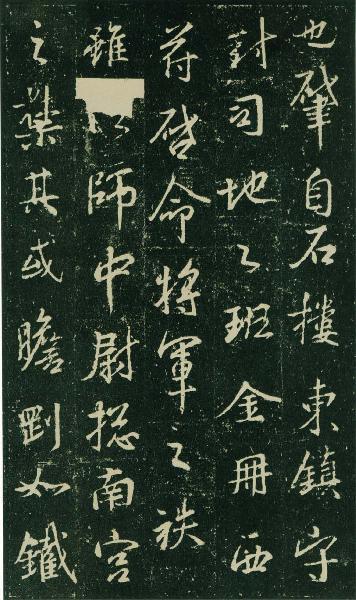 也肇自石樓東鎮守
封司地之班金冊西
符啓命將軍之秩
雖以師中尉揔南宮
之業其或瞻剛如鐵